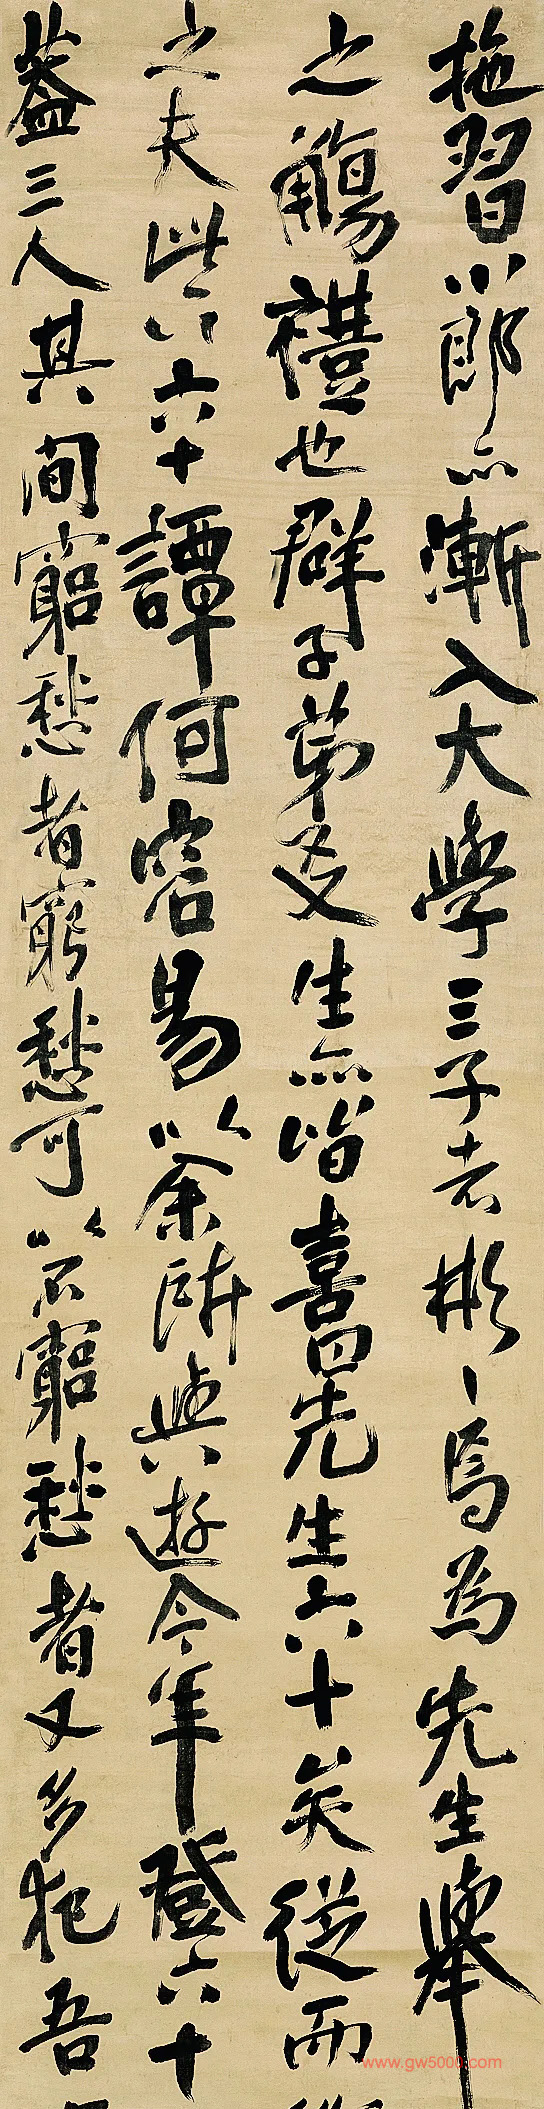 拖習小郎亦漸入大學三子者彬〻焉為先生舉
之觴禮也群子弟友生亦皆喜曰先生六十矣從而
之夫此六十譚何容易以余所與遊今年登六十
蓋三人其間窮愁者窮愁可以不窮愁者又多犯吾
www.gw5000.com